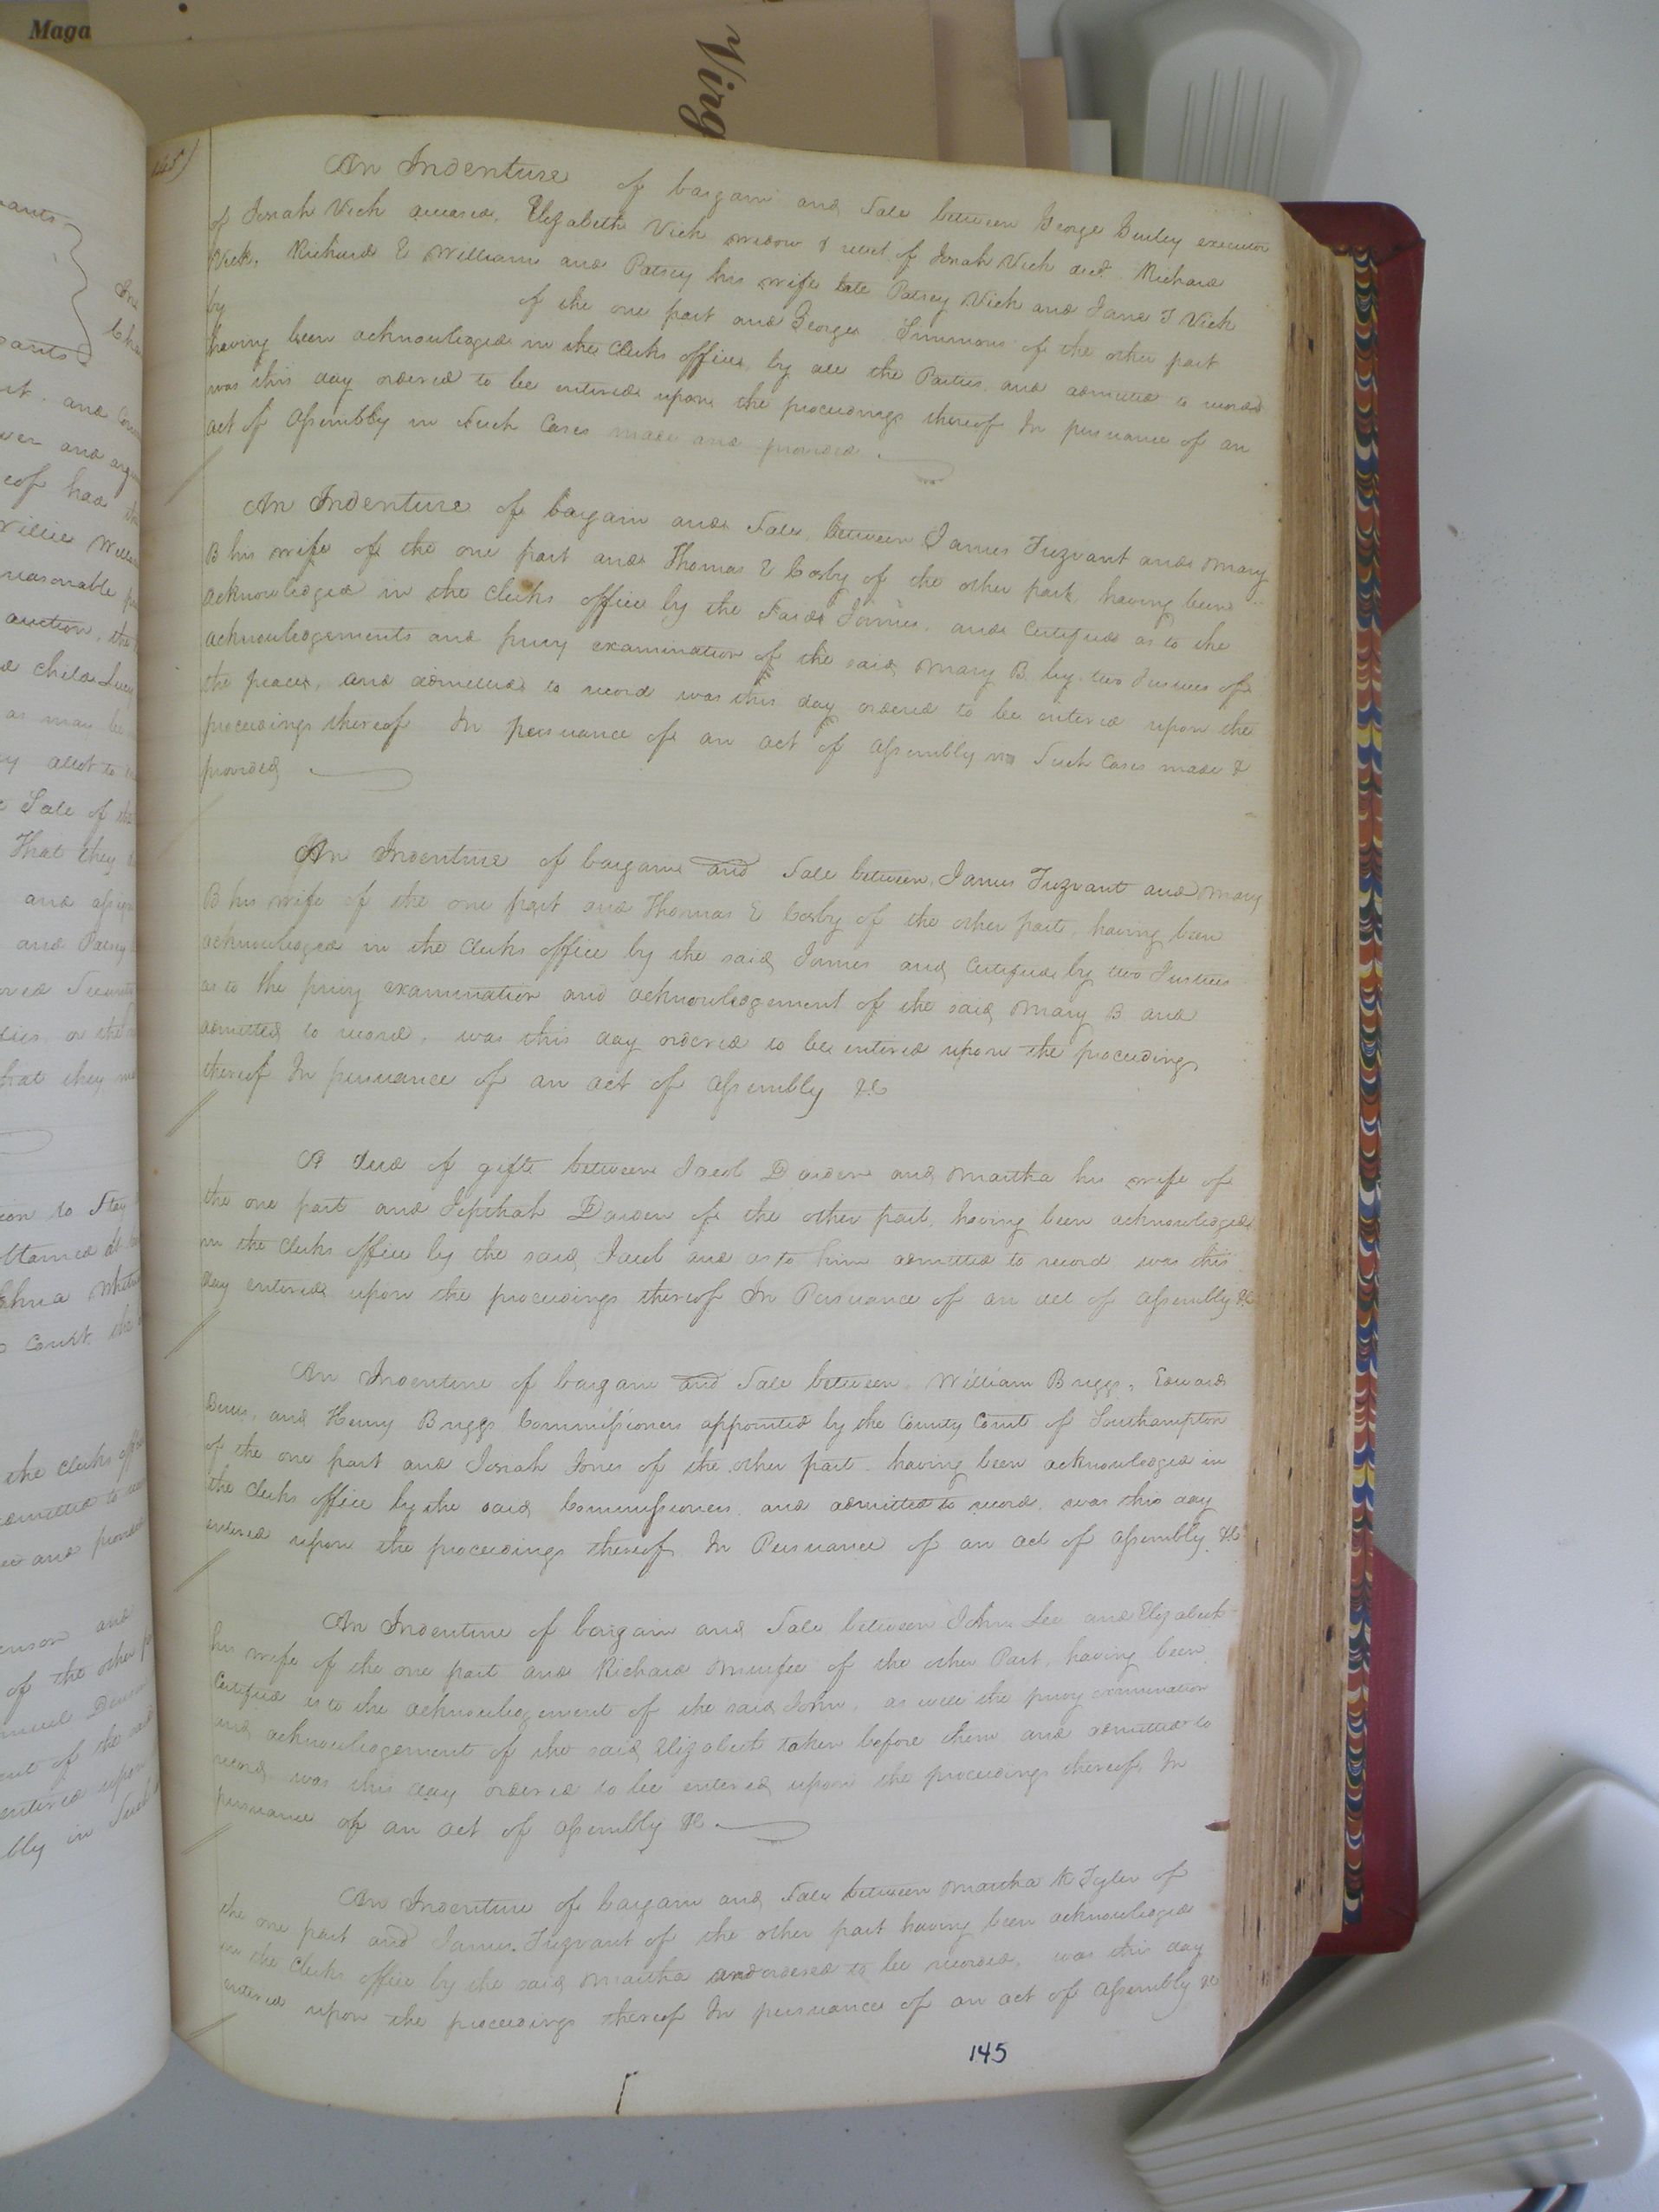 Maga
Virg
145)
An Indenture of bargain and Sale between George Gurley executor
of Josiah Vick deceased, Elizabeth Vick widow & relict of Josiah Vick decd. Richard
Vick, Richard E Williams and Patsey his wife late Patsey Vick and Jane T Vick
by of the one part and George Simmons of the other part
having been acknowledged in the Clerks office, by all the Parties and admitted to record
was this day ordered to be entered upon the proceedings thereof In pursuance of an
act of Assembly in Such Cases made and provided.
An Indenture of bargain and Sale between James Trezvant and Mary
B his wife of the one part and Thomas E Cosby of the other part, having been
acknowledged in the Clerks office by the Said James, and Certified as to the
acknowledgements and privy examination of the said Mary B by two Justices of
the peace, and admitted to record was this day ordered to be entered upon the
proceedings thereof In persuance of an act of Assembly in Such Cases made &
provided
An Indenture of bargain and Sale between, James Trezvant and Mary
B his wife of the one part and Thomas E Cosby of the other part, having been
acknowledged in the Clerks office by the said James and Certified by two Justices
as to the privy examination and acknowledgement of the said Mary B and
admitted to record, was this day ordered to be entered upon the proceedings
thereof In pursuance of an act of Assembly &c
A deed of gift between Jacob Darden and Martha his wife of
the one part and Jepthah Darden of the other part, having been acknowledged
in the Clerks office by the said Jacob and as to him admitted to record was this
day entered upon the proceedings thereof In Persuance of an act of Assembly &c
An Indenture of bargain and Sale between William Briggs, Edward
and Henry Briggs Commissioners appointed by the County Court of Southampton
of the one part and Josiah Jones of the other part having been acknowledged in
the Clerks office by the said Commissioners and admitted to record, was this day
entered upon the proceedings thereof In Persuance of an act of Assembly &c
An Indenture of bargain and Sale between John Lee and Elizabeth
his wife of the one part and Richard Murfee of the other Part, having been
Certified as to the acknowledgement of the said John, as well the privy examination
and acknowledgement of the said Elizabeth taken before them and admitted to
record was this day ordered to be entered upon the proceedings thereof In
persuance of an act of Assembly &c
An Indenture of bargain and Sale between Martha K Tyler of
the one part and James Trezvant of the other part having been acknowledged
in the Clerks office by the said Martha and ordered to be recorded, was this day
entered upon the proceedings thereof In persuance of an act of Assembly &c
145